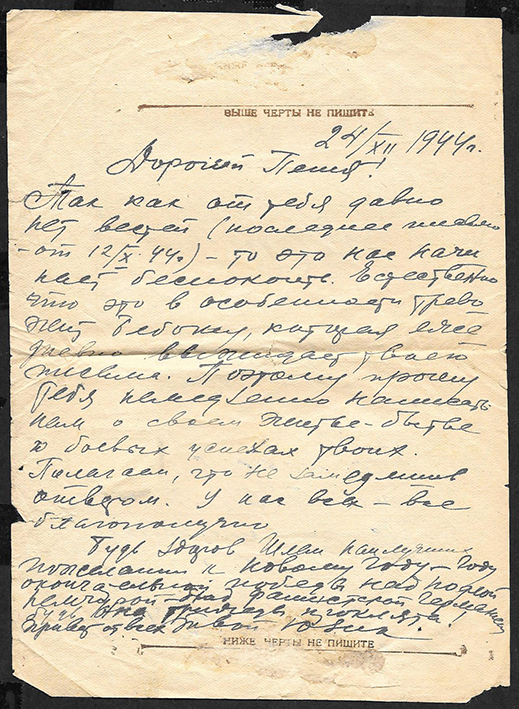 ВЫШЕ ЧЕРТЫ НЕ ПИШИТЕ
24/XII 1944г.
Дорогой Петя!
Так как от тебя давно
нет вестей (последнее письмо
- от 12/X. 44г.) - то это нас начи
нает беспокоить. Естественно
что это в особенности трево
жит бабоньку, которая еже
дневно выжидает твоего
письма. Поэтому прошу
тебя немедленно написать
нам о своем житье-бытье
и боевых успехах твоих.
Полагаем, что не замедлишь
ответом. У нас все - все
благополучно
Будь здоров Шлем наилучшие
пожелания к новому году - году
окончательной победы над
немчурой - над фашистской Германией
Будь она трижды проклята
Привет от всех Твой
НИЖЕ ЧЕРТЫ НЕ ПИШИТЕ